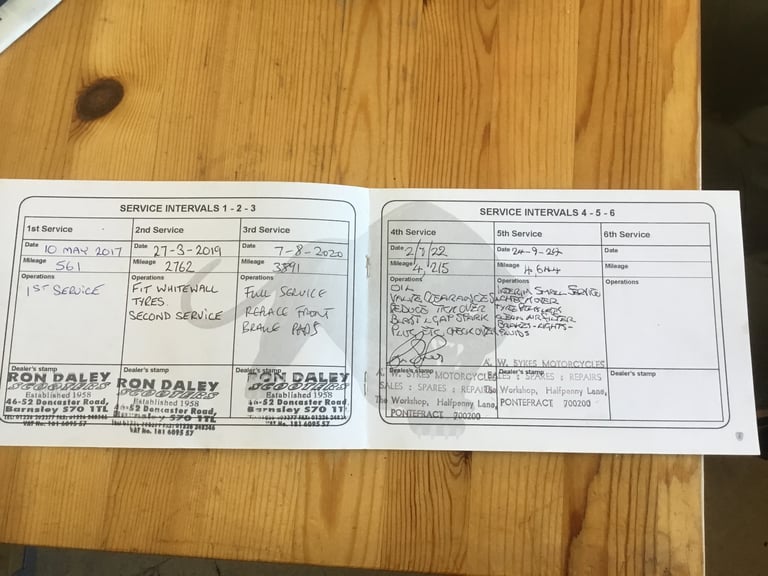 SERVICE INTERVALS 1 - 2 - 3
1st Service
Date 10 MAY 2017
Mileage 561
Operations
1ST SERVICE
Dealer's stamp
RON DALEY
SCOOTERS
Established 1958
46-52 Doncaster Road,
Barnsley S70 1TL
VAT No. 181 6095 57
2nd Service
Date 27-3-2019
Mileage 2762
Operations
FIT WHITEWALL
TYRES.
SECOND SERVICE
Dealer's stamp
RON DALEY
SCOOTERS
Established 1958
46-52 Doncaster Road,
Barnsley S70 1TL
VAT No. 181 6095 57
3rd Service
Date 7-8-2020
Mileage 3891
Operations
FULL SERVICE
REPLACE FRONT
BRAKE PADS
Dealer's stamp
RON DALEY
SCOOTERS
Established 1958
46-52 Doncaster Road,
Barnsley S70 1TL
VAT No. 181 6095 57
SERVICE INTERVALS 4 - 5 - 6
4th Service
Date 2/7/22
Mileage 4,215
Operations
OIL
VALVE CLEARANCES
REDUCE TICKOVER
SPARK
CHECK OVER
Dealer's stamp
A. W. SYKES MOTORCYCLES
SALES : SPARES : REPAIRS
The Workshop, Halfpenny Lane,
PONTEFRACT 700200
5th Service
Date 24-9-24
Mileage 4,644
Operations
INTERIM SMALL SERVICE
CLEAN AIR FILTER
BRAKES-LIGHTS-
FLUIDS
Dealer's stamp
W. SYKES MOTORCYCLES
SPARES : REPAIRS
The Workshop, Halfpenny Lane,
PONTEFRACT 700200
6th Service
Date
Mileage
Operations
Dealer's stamp